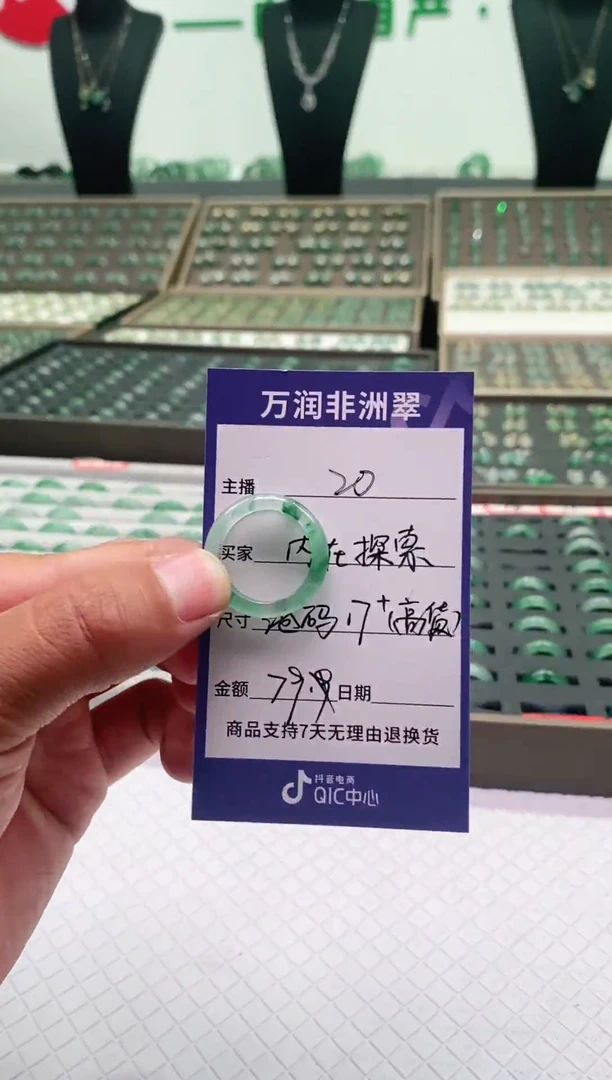 产
万润非洲翠
主播 20
买家 内在探索
尺寸 港码 17+(高货)
金额 79.9 日期
商品支持7天无理由退换货
抖音电商
QIC中心